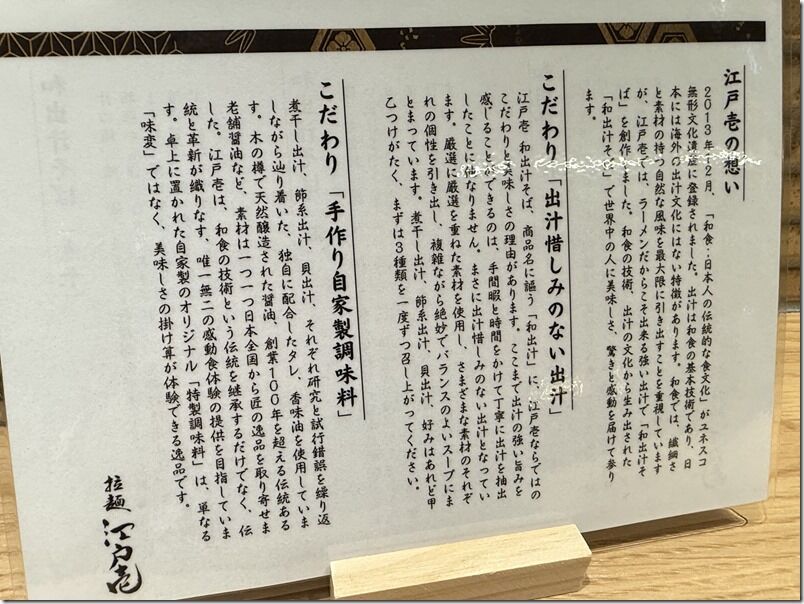 江戸壱の想い
2013年12月、「和食：日本人の伝統的な食文化」がユネスコ
無形文化遺産に登録されました。出汁は和食の基本技術であり、日
本には海外の出汁文化にはない特徴があります。和食では、繊細さ
と素材の持つ自然な風味を最大限に引き出すことを重視しています
が、江戸壱では、ラーメンだからこそ出来る強い出汁で「和出汁そ
ば」を創作しました。和食の技術、出汁の文化から生み出された
「和出汁そば」で世界中の人に美味しさ、驚きと感動を届けて参り
ます。
こだわり「出汁惜しみのない出汁」
江戸壱 和出汁そば、商品名に謳う「和出汁」に、江戸壱ならではの
こだわりと美味しさの理由があります。ここまで出汁の強い旨みを
感じることができるのは、手間暇と時間をかけて丁寧に出汁を抽出
したことに他なりません。まさに出汁惜しみのない出汁となってい
ます。厳選に厳選を重ねた素材を使用し、さまざまな素材のそれぞ
れの個性を引き出し、複雑ながら絶妙でバランスのよいスープにま
とまっています。煮干し出汁、節系出汁、貝出汁、好みはあれど甲
乙つけがたく、まずは3種類を一度ずつ召し上がってください。
こだわり「手作り自家製調味料」
煮干し出汁、節系出汁、貝出汁、それぞれ研究と試行錯誤を繰り返
しながら辿り着いた、独自に配合したタレ、香味油を使用していま
す。木の樽で天然醸造された醤油、創業100年を超える伝統ある
老舗醤油など、素材は一つ一つ日本全国から匠の逸品を取り寄せま
した。江戸壱は、和食の技術という伝統を継承するだけでなく、伝
統と革新が織りなす、唯一無二の感動食体験の提供を目指していま
す。卓上に置かれた自家製のオリジナル「特製調味料」は、単なる
「味変」ではなく、美味しさの掛け算が体験できる逸品です。
拉麺 江戸壱